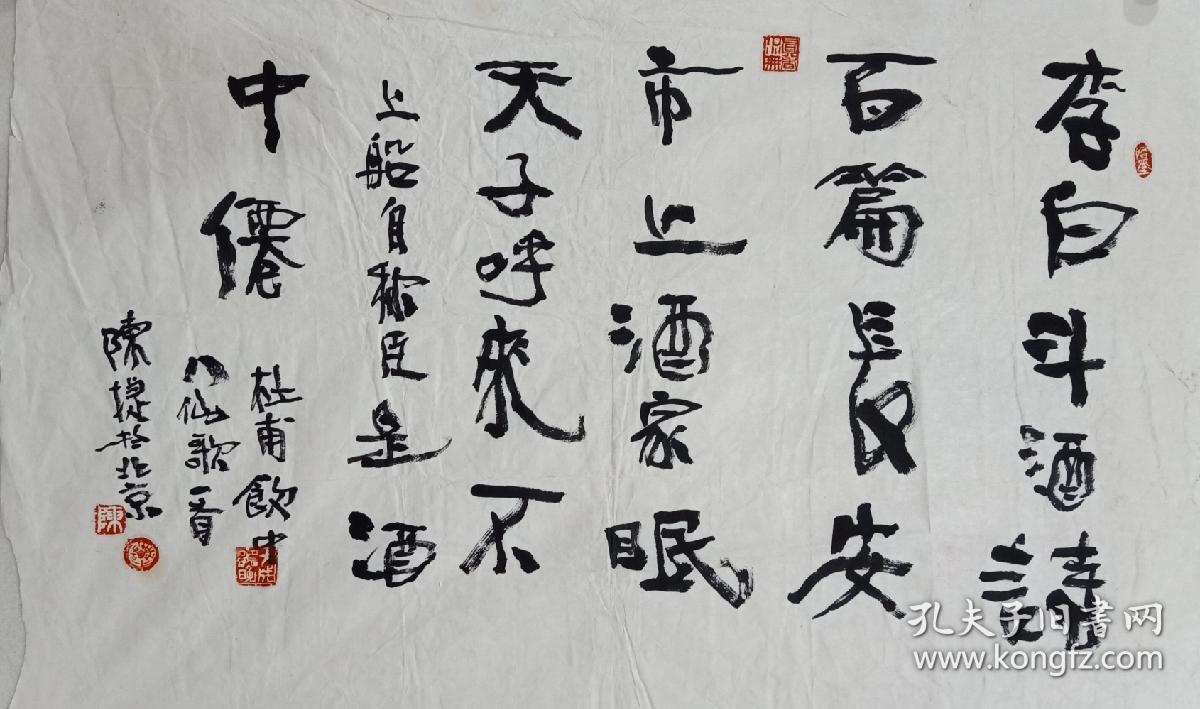 李白斗酒詩
百篇長安
市上酒家眠
天子呼來不
上船自稱臣是酒
中僊
杜甫飲中
八仙歌一首
陳捷於北京
陳
孔夫子旧书网
www.kongfz.com